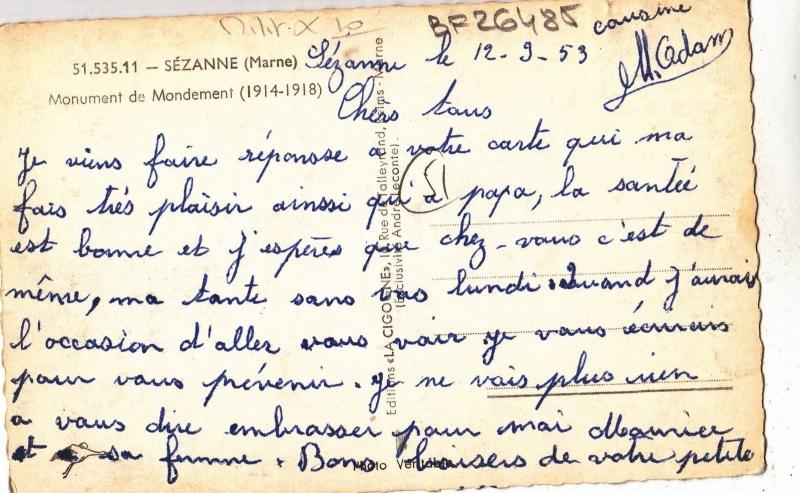 BF26485
51.535.11 — SÉZANNE (Marne)
Monument de Mondement (1914-1918)
Sézanne le 12-9-53
Chers tous
Je viens faire réponsse a votre carte qui ma
fais très plaisir ainssi qu'a papa, la santée
est bonne et j'espères que chez-vous c'est de
même, ma tante sans vas lundi. Quand j'aurais
l'occasion d'aller vous voir je vous écrirais
pour vous prévenir. Je ne vais plus rien
a vous dire embrasser pour moi Maurice
et sa femme. Bons baisers de votre petite
cousine
M. Adam
51
Editions «LA CIGOGNE», Rue de Talleyrand, Reims - Marne
(Exclusivité André Leconte).
Photo Véritable